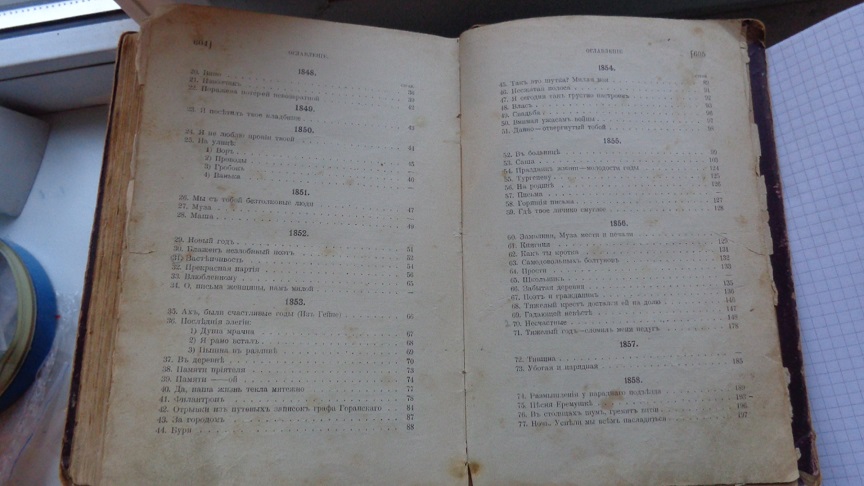 ОГЛАВЛЕНІЕ.
1848.
20. Вино
22. Поражена потерей невозвратной
1849.
23. Я посѣтилъ твое кладбище
1850.
24. Я не люблю ироніи твоей
25. На улицѣ:
1) Воръ
2) Проводы
3) Гробокъ
4) Ванька
1851.
26. Мы съ тобой безтолковые люди
27. Муза 47
28. Маша
1852.
29. Новый годъ
30. Блаженъ незлобивый поэтъ 51
31) Застѣнчивость 52
32. Прекрасная партія 54
33. Влюбленному 56
34. О, письма женщины, намъ милой 65
1853.
35. Ахъ, были счастливые годы (Изъ Гейне) 66
36. Послѣднія элегіи:
1) Душа мрачна 67
2) Я рано всталъ 68
3) Пышна въ разливѣ 69
37. Въ деревнѣ 70
38. Памяти пріятеля 73
39. Памяти ——ой 74
40. Да, наша жизнь текла мятежно
41. Филантропъ 78
42. Отрывки изъ путевыхъ записокъ графа Горанскаго 84
43. За городомъ 87
44. Буря 88
ОГЛАВЛЕНІЕ.
1854.
46. Несжатая полоса 91
47. Я сегодня такъ грустно настроенъ 92
48. Власъ
49. Свадьба
50. Внимая ужасамъ войны 97
51. Давно—отвергнутый тобой
1855.
52. Въ больницѣ
53. Саша 103
54. Праздникъ жизни—молодости годы 124
55. Тургеневу 125
56. На родинѣ 126
57. Письма
58. Горящія письма 127
59. Гдѣ твое личико смуглое 128
1856.
60. Замолкни, Муза мести и печали
61. Княгиня 129
62. Какъ ты кротка 131
63. Самодовольныхъ болтуновъ 132
64. Прости 133
65. Школьникъ
66. Забытая деревня 135
67. Поэтъ и гражданинъ 136
68. Тяжелый крестъ достался ей на долю
69. Гадающей невѣстѣ 147
70. Несчастные
71. Тяжелый годъ—сломилъ меня недугъ 178
1857.
72. Тишина
73. Убогая и нарядная 183
1858.
74. Размышленія у параднаго подъѣзда 189
75. Пѣсня Еремушкѣ
76. Въ столицахъ шумъ, гремятъ витіи 196
77. Ночь. Успѣли мы всѣмъ насладиться 197